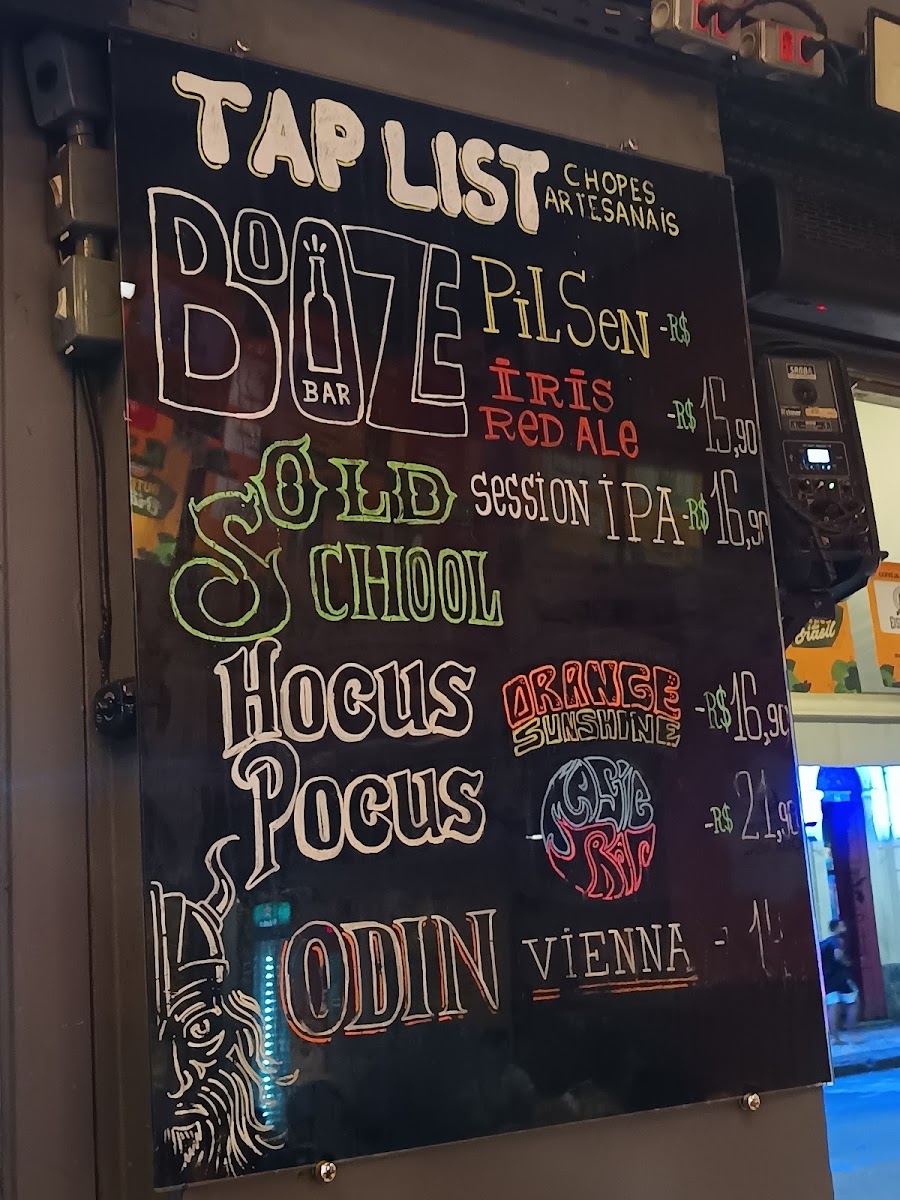 TAP LIST
CHOPES
ARTESANAIS
BOOZE
BAR
PiLSeN -R$
iRiS
ReD ALe -R$ 15,90
OLD
SCHOOL
SeSSiON iPA -R$ 16,90
HOCUS
POCUS
ORANGE
SUNSHINE -R$ 16,90
-R$ 21,90
ODIN
ViENNA -